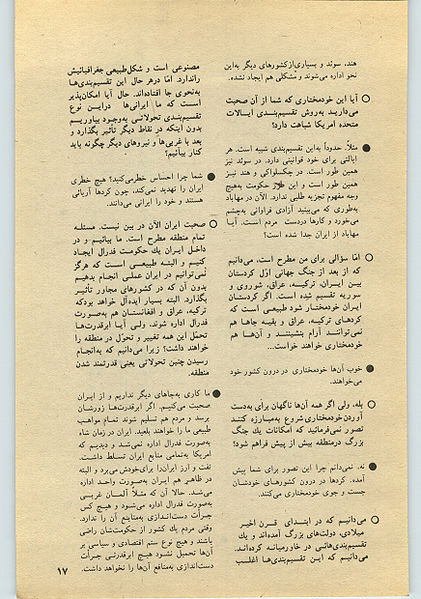 هند، سوئد و بسیاری از کشورهای دیگر به‌این
نحو اداره می‌شوند و مشکلی هم ایجاد نشده.
○ آیا این خودمختاری که شما از آن صحبت
می‌دارید به‌روش تقسیم‌بندی ایالات
متحده امریکا شباهت دارد؟
● مثلاً. حدوداً به‌این تقسیم‌بندی شبیه است. هر
ایالتی برای خود قوانینی دارد. در سوئد نیز
همین طور است. در چکسلواکی و هند نیز
همین طور است و این طرز حکومت به‌هیچ
وجه مفهوم تجزیه طلبی ندارد. الآن در مهاباد
به‌طوری که می‌بینید آزادی فراوانی به‌چشم
می‌خورد و کارها دردست مردم است. آیا
مهاباد از ایران جدا شده است؟
○ اما سؤالی برای من مطرح است، می‌دانیم
که از بعد از جنگ جهانی اوّل کردستان
بین ایران، ترکیه، عراق، شوروی و
سوریه تقسیم شده است. اگر کردستان
ایران خودمختار شود طبیعی است که
کردهای ترکیه، عراق و بقیه جاها هم
نمی‌توانند آرام بنشینند و آن‌ها هم
خودمختاری خواهند خواست...
● خوب آن‌ها خودمختاری در درون کشور خود
می‌خواهند.
○ بله، ولی اگر همه آن‌ها ناگهان برای به‌دست
آوردن خودمختاری شروع به‌مبارزه کنند
تصور نمی‌فرمائید که امکانات یك جنگ
بزرگ درمنطقه بیش از پیش فراهم شود؟
● نه. نمی‌دانم چرا این تصور برای شما پیش
آمده. کردها در درون کشورهای خودشان
جست و جوی خودمختاری می‌کنند.
○ می‌دانیم که در ابتدای قرن اخیر
میلادی، دولت‌های بزرگ آمده‌اند و یك
تقسیم‌بندی‌هائی در خاورمیانه کرده‌اند.
می‌دانیم که این تقسیم‌بندی‌ها اغلب
مصنوعی است و شکل‌طبیعی جغرافیائیش
راندارد. امّا درهر حال این تقسیم‌بندی‌ها
به‌نحوی جا افتاده‌اند. حال آیا امکان‌پذیر
است که ما ایرانی‌ها دراین نوع
تقسیم‌بندی تحولاتی به‌وجود بیاوریم
بدون اینکه در نقاط دیگر تأثیر بگذارد و
بعد با غربی‌ها و نیروهای دیگر چگونه باید
کنار بیائیم؟
● شما چرا احساس خطر می‌کنید؟ هیچ خطری
ایران را تهدید نمی‌کند، چون کردها آریائی
هستند و خود را ایرانی می‌دانند.
○ صحبت ایران الآن در بین نیست. مسئله
تمام منطقه مطرح است. ما بیائیم و در
داخل ایران یك حکومت فدرال ایجاد
کنیم و البته طبیعی است که هرگز
نمی‌توانیم در ایران عملی انجام بدهیم
بدون آن که در کشورهای مجاور تأثیر
بگذارد. البته بسیار ایده‌آل خواهد بودکه
ترکیه، عراق و افغانستان هم به‌صورت
فدرال اداره شوند، ولی آیا ابرقدرت‌ها
تحمل این همه تغییر و تحوّل در منطقه را
خواهند داشت؟ زیرا می‌دانیم که به‌انجام
رسیدن چنین تحولاتی یعنی قدرتمند شدن
منطقه.
● ما کاری به‌جاهای دیگر نداریم و از ایران
صحبت می‌کنیم. اگر ابرقدرت‌ها زورشان
برسد و مردم هم تسلیم شوند تمام مواهب
طبیعی ما را خواهند بلعید. ایران در زمان شاه
به‌صورت فدرال اداره نمی‌شد و دیدیم که
امریکا به‌تمامی منابع ایران تسلط داشت.
نفت و ارز ایران را برای‌خودش می‌برد و البته
در ظاهر هم ایران به‌صورت واحد اداره
می‌شد. حالا آن که مثلاً آلمان غربی
به‌صورت فدرال اداره می‌شود و هیچ کس
جرأت دست‌اندازی به‌منابع آن را ندارد.
وقتی مردم یك کشور از حکومت‌شان راضی
باشند و هیچ نوع ستم اقتصادی و سیاسی بر
آن‌ها تحمیل نشود هیچ ابرقدرتی جرأت
دست‌اندازی به‌منافع آن‌ها را نخواهد داشت.
۱۷